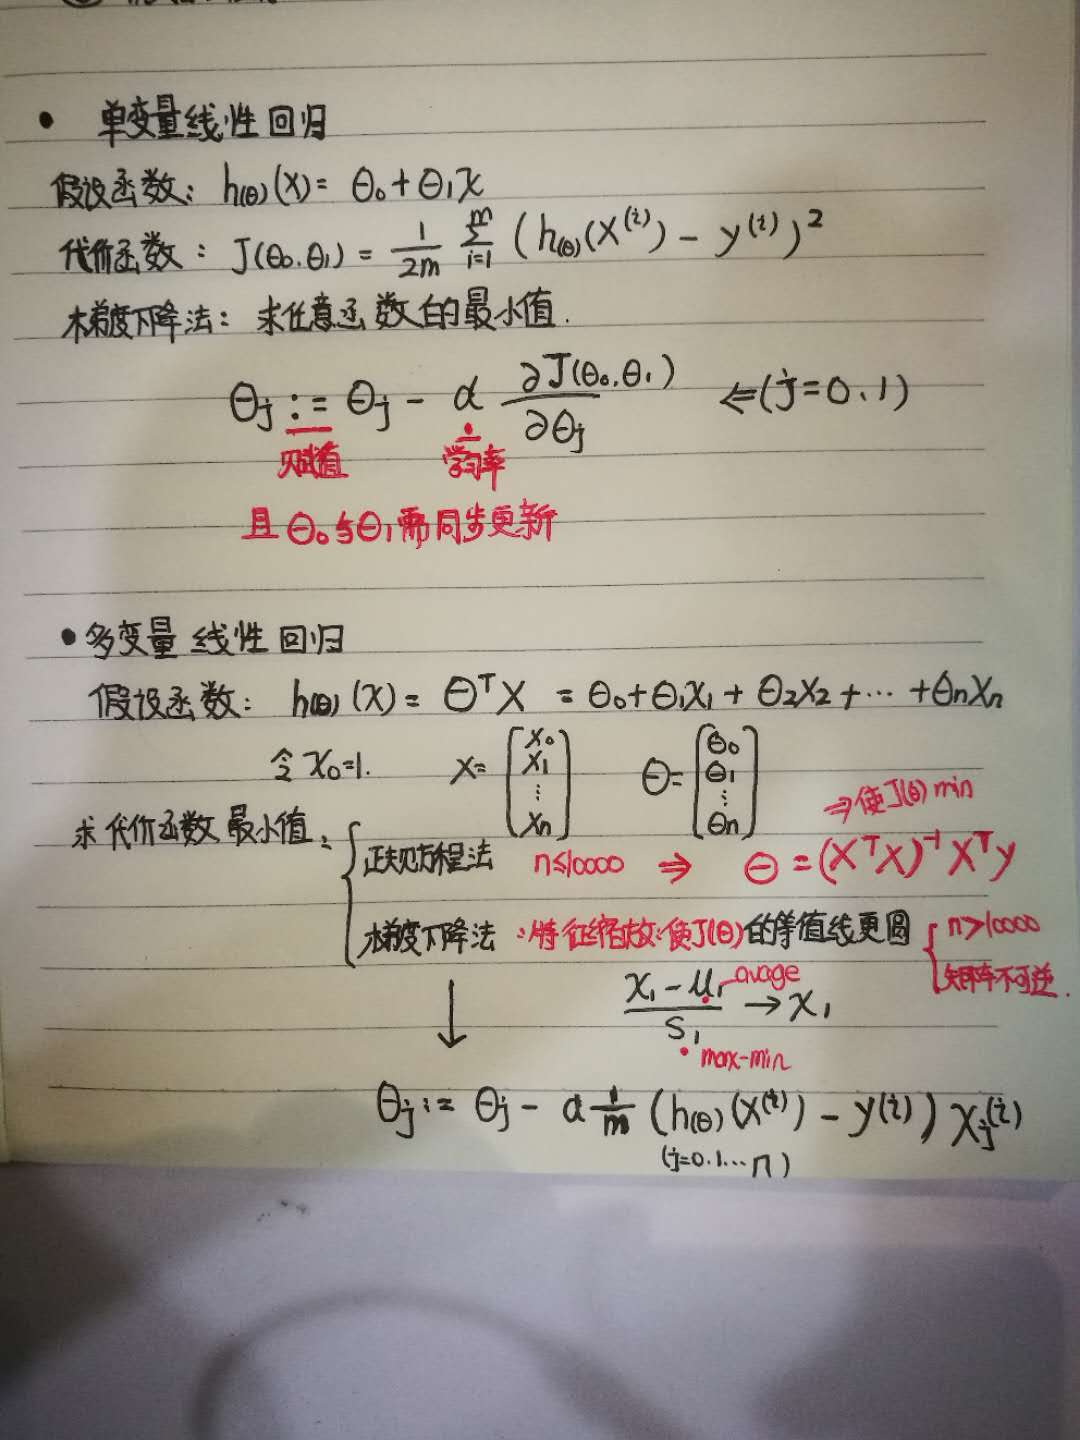 • 单变量线性回归
假设函数: h(θ)(x) = θ₀ + θ₁x
代价函数: J(θ₀.θ₁) = 1/2m ∑ᵢ₌₁ᵐ (h(θ)(x⁽ⁱ⁾) - y⁽ⁱ⁾)²
梯度下降法: 求任意函数的最小值.
θj := θj - α ∂J(θ₀.θ₁)/∂θj ⇐(j=0.1)
赋值 学习率
且θ₀与θ₁需同步更新
• 多变量线性回归
假设函数: h(θ)(x) = θᵀX = θ₀+θ₁x₁ + θ₂x₂ + ⋯ + θnxn
令x₀=1. x = [x₀ x₁ ⋮ xn] θ = [θ₀ θ₁ ⋮ θn]
⇒使J(θ) min
求代价函数最小值:
正规方程法 n≤10000 ⇒ θ = (XᵀX)⁻¹Xᵀy
梯度下降法:特征缩放:使J(θ)的等值线更圆 { n>10000
矩阵不可逆.
↓ (x₁ - μ₁)/S₁ → x₁
avage
max-min
θj := θj - α 1/m (h(θ)(x⁽ⁱ⁾) - y⁽ⁱ⁾) xj⁽ⁱ⁾
(j=0.1…n)